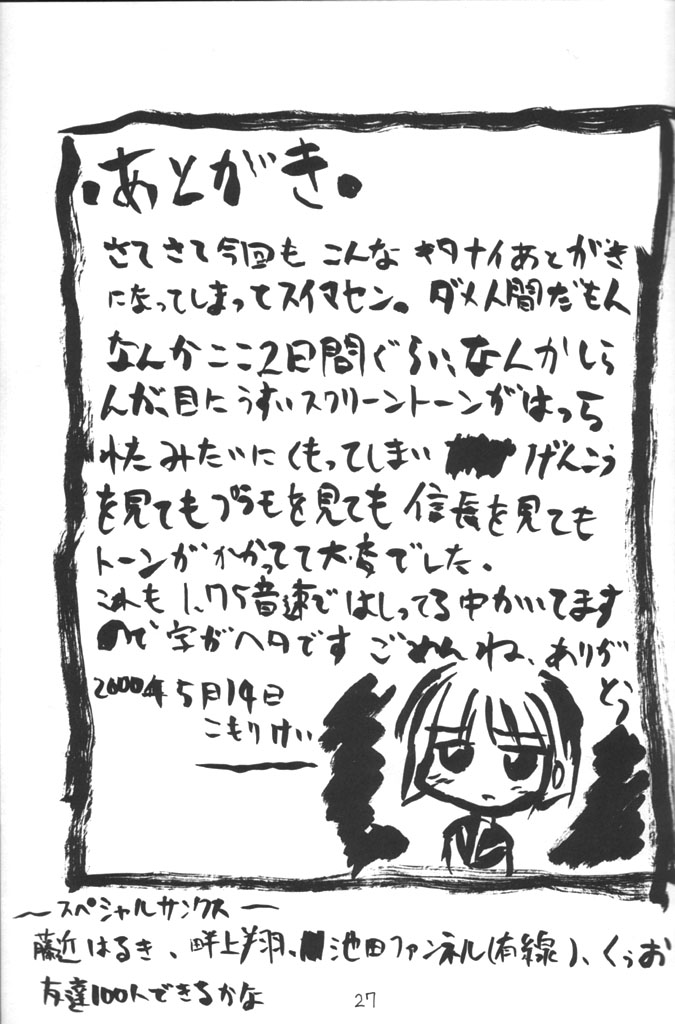 ・あとがき。
さてさて今回も こんな キタナイあとがき
になってしまってスイマセン。 ダメ人間だもん
なんかここ2日間ぐらい、なんかしら
んが、目にうすいスクリーントーンがはっら
れたみたいにくもってしまい げんこう
を見てもプラモを見ても 信長を見ても
トーンがかかってて大変でした。
これも 1.75音速ではしってる中かいてます
ので字がヘタです ごめんね、ありが
とう
2000年5月14日
こもりけい
〜スペシャルサンクス〜
藤近はるき、畔上翔、池田ファンネル(有線)、くぅお
友達100人できるかな
27